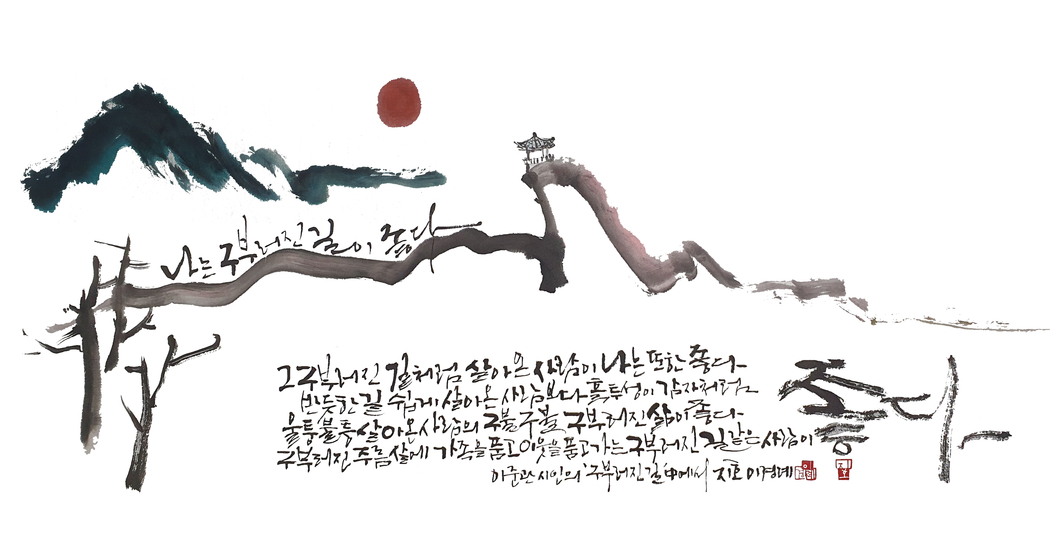 나는 구부러진 길이 좋다
그 구부러진 길처럼 살아온 사람이 나는 또한 좋다
반듯한 길 쉽게 살아온 사람보다 흙투성이 감자처럼
울퉁불퉁 살아온 사람의 구불구불 구부러진 삶이 좋다
구부러진 주름살에 가족을 품고 이웃을 품고 가는 구부러진 길 같은 사람이
좋다
이준관 시인의 '구부러진 길' 中에서 지호 이경례